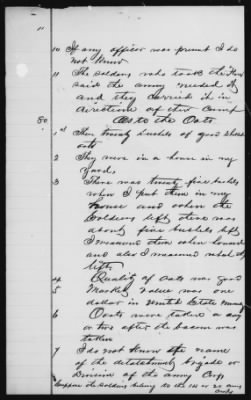 10 If any officer was present I do
not Know
11 The soldiers who took the
said the army needed it
and they carried it in
direction of their Camp
As to the Oats
1st There twenty bushels of good
oats
2 They were in a house in my
yard
3 There was twenty five bushels
when I put them in my
house and when the
Soldiers left there was
about five bushels left
I measured them when housed
and also I measured what they
left
4 Quality of oats was good
5 Market Value was one
dollar in United States money
6 Oats were taken a day
or two after the bacon was
taken
7 I do not Know the name
of the detachment, brigade or
Division of the army Corps
suppose the soldiers belong to the 14 or 20 army